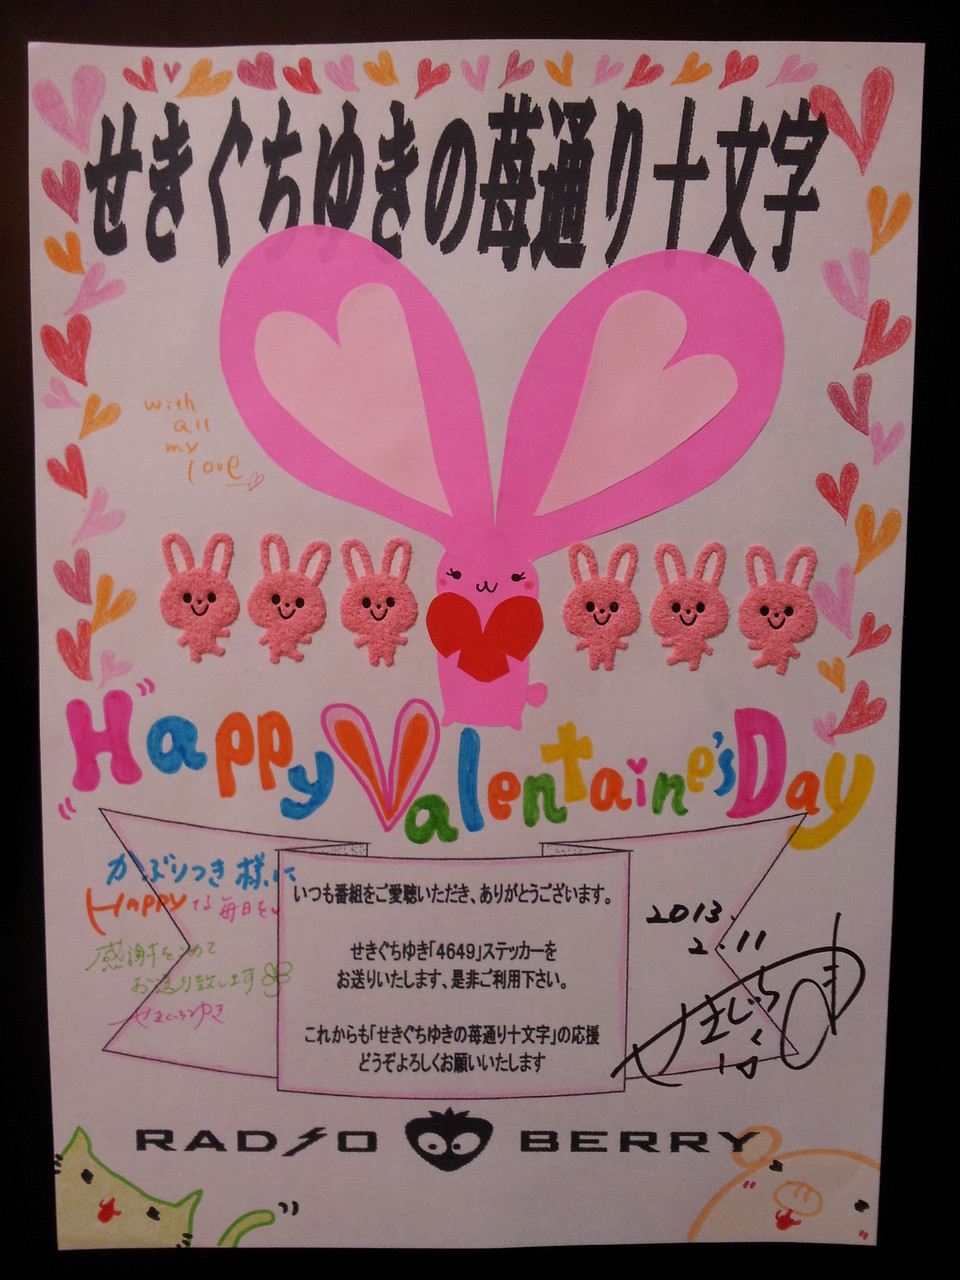 せきぐちゆきの苺通り十文字
with
all
my
love
Happy Valentaine'sDay
かぶりつき様に
Happyな毎日を
感謝をこめて
お送り致します
せきぐちゆき
いつも番組をご愛聴いただき、ありがとうございます。
せきぐちゆき「4649」ステッカーを
お送りいたします、是非ご利用下さい。
これからも「せきぐちゆきの苺通り十文字」の応援
どうぞよろしくお願いいたします
2013.
2.11
せきぐち
ゆき
RADIO BERRY